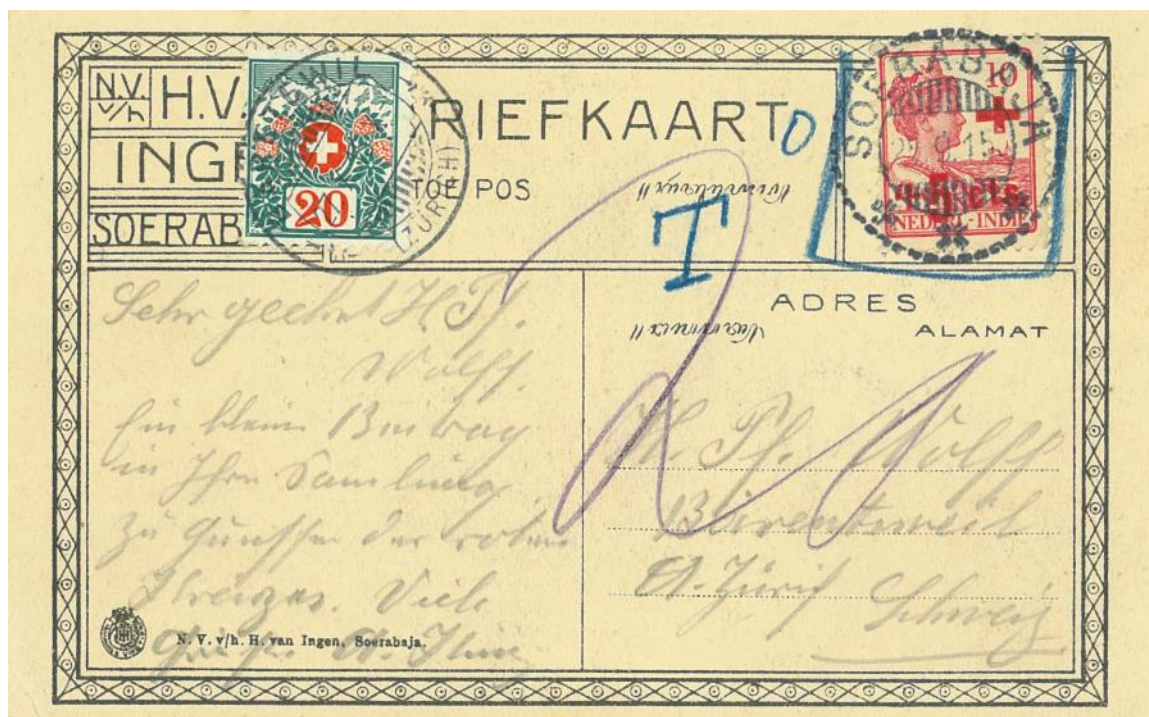 N.V. v/h H.V.
INGE
SOERAB
RIEFKAART
TOE POS
SOERABAJA
10
5 cts
NEDERL-INDIË
20
(ZÜRICH)
0
T
ADRES
ALAMAT
Sehr geehrt H. Pf.
Wolff.
Ein klein Beitrag
in Ihre Samlung
zu Gunsten des roten
Kreuzes. Viele
H. Pf. Wolff
Kt. Zürich
Schweiz
N. V. v/h. H. van Ingen, Soerabaja.